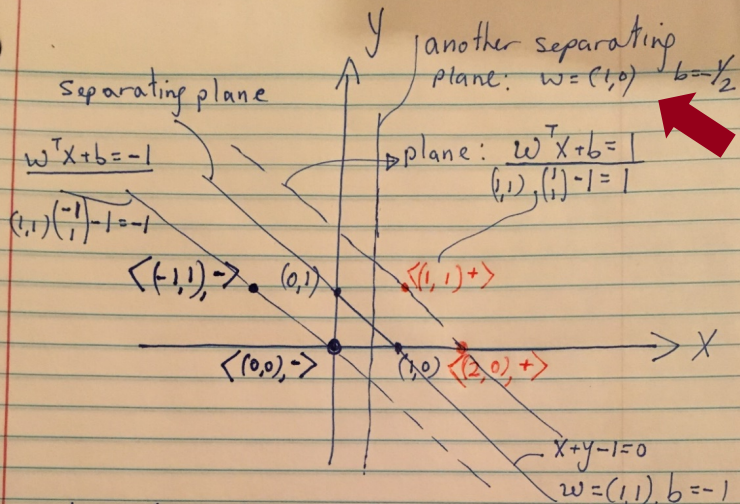 y
another separating
plane: w = (1,0) b=-1/2
separating plane
w^T x+b=-1
plane: w^T x+b=1
(1,1)(1 1)-1=1
(1,1)(-1 1)-1=-1
<(-1,1),->
(0,1)
<(1,1)+>
X
<(0,0),->
(1,0)
<(2,0),+>
x+y-1=0
w=(1,1), b=-1